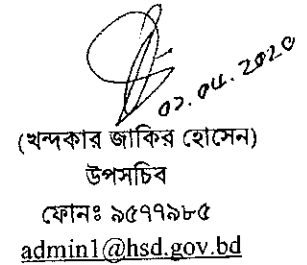 ০২.০৪.2020
(খন্দকার জাকির হোসেন)
উপসচিব
ফোনঃ ৯৫৭৭৯৮৫
admin1@hsd.gov.bd